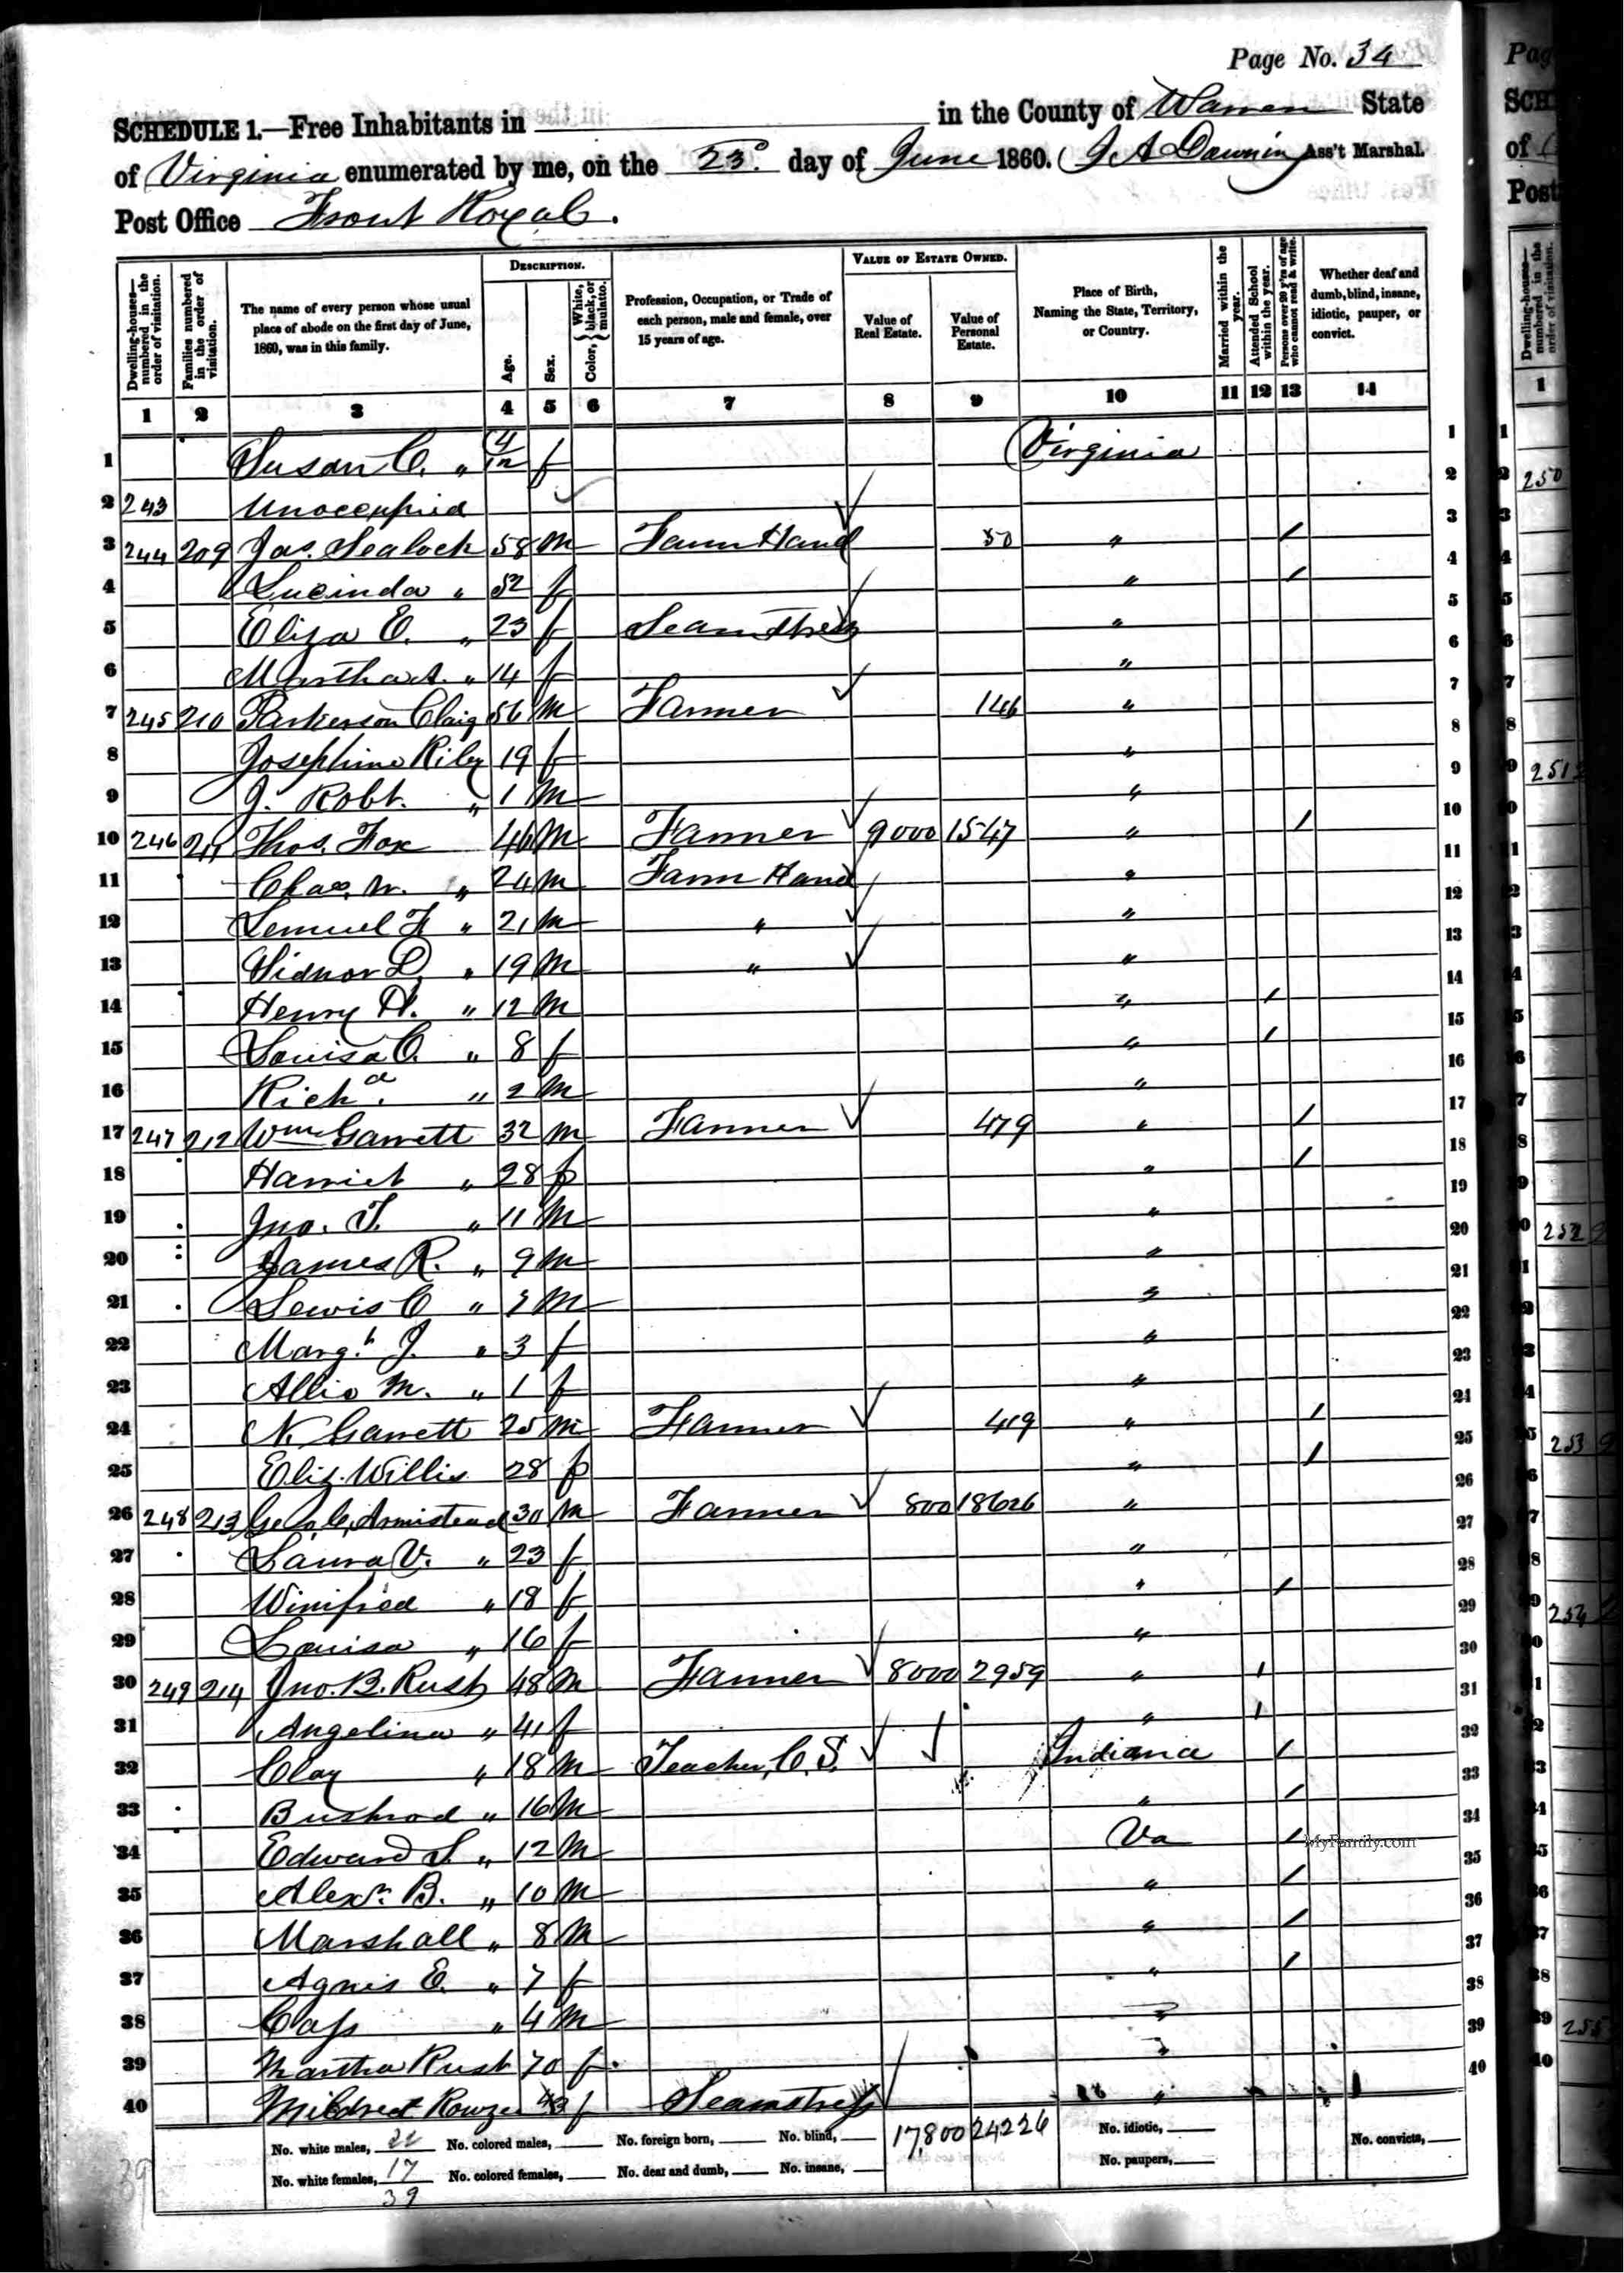 Page No. 34
SCHEDULE 1.—Free Inhabitants in ______ in the County of Warren State
of Virginia enumerated by me, on the 23d. day of June 1860. J A Downing Ass't Marshal.
Post Office Front Royal.
Dwelling-houses—numbered in the order of visitation.
Families numbered in the order of visitation.
The name of every person whose usual place of abode on the first day of June, 1860, was in this family.
DESCRIPTION.
Age.
Sex.
Color, White, black, or mulatto.
Profession, Occupation, or Trade of each person, male and female, over 15 years of age.
VALUE OF ESTATE OWNED.
Value of Real Estate.
Value of Personal Estate.
Place of Birth, Naming the State, Territory, or Country.
Married within the year.
Attended School within the year.
Persons over 20 y'rs of age who cannot read & write.
Whether deaf and dumb, blind, insane, idiotic, pauper, or convict.
1 2 3 4 5 6 7 8 9 10 11 12 13 14
1 Susan C. " 4/12 f Virginia 1
2 243 Unoccupied 2
3 244 209 Jas. Sealock 58 m Farm Hand 50 " / 3
4 Lucinda " 52 f " / 4
5 Eliza E. " 23 f Seamstress " 5
6 Martha A. " 14 f " 6
7 245 210 Parkerson Claig 56 m Farmer 146 " 7
8 Josephine Riley 19 f " 8
9 J. Robt. " 1 m " 9
10 246 211 Thos. Fox 46 m Farmer 9000 1547 " / 10
11 Chas. W. " 24 m Farm Hand " 11
12 Lemuel F " 21 m " " 12
13 Sidnor D. " 19 m " " 13
14 Henry H. " 12 m " / 14
15 Louisa C. " 8 f " / 15
16 Richd. " 2 m " 16
17 247 212 Wm Garrett 32 m Farmer 479 " / 17
18 Harriet " 28 f " / 18
19 Jno. T. " 11 m " 19
20 James R. " 9 m " 20
21 Lewis C " m " 21
22 Margh. J. " 3 f " 22
23 Allis M. " 1 f " 23
24 N. Garrett 25 m Farmer 419 " / 24
25 Eliz. Willis 28 f " / 25
26 248 213 Geo. C. Armistead 30 m Farmer 800 18626 " 26
27 Laura V. " 23 f " 27
28 Winifred " 18 f " / 28
29 Louisa " 16 f " 29
30 249 214 Jno. B. Rust 48 m Farmer 8000 2959 " / 30
31 Angelina " 41 f " / 31
32 Clay " 18 m Teacher, C. S. Indiana / 32
33 Bushrod " 16 m " / 33
34 Edward S. " 12 m Va / 34
35 Alexr. B. " 10 m " / 35
36 Marshall " 8 m " / 36
37 Agnis E. " 7 f " / 37
38 Cass " 4 m " 38
39 Martha Rust 70 f " 39
40 Mildred Rowze 43 f Seamstress " 40
No. white males, 22 No. colored males, ___ No. foreign born, ___ No. blind, ___ 17,800 24226 No. idiotic, ___ No. convicts, ___
No. white females, 17 No. colored females, ___ No. deaf and dumb, ___ No. insane, ___ No. paupers, ___
39
MyFamily.com